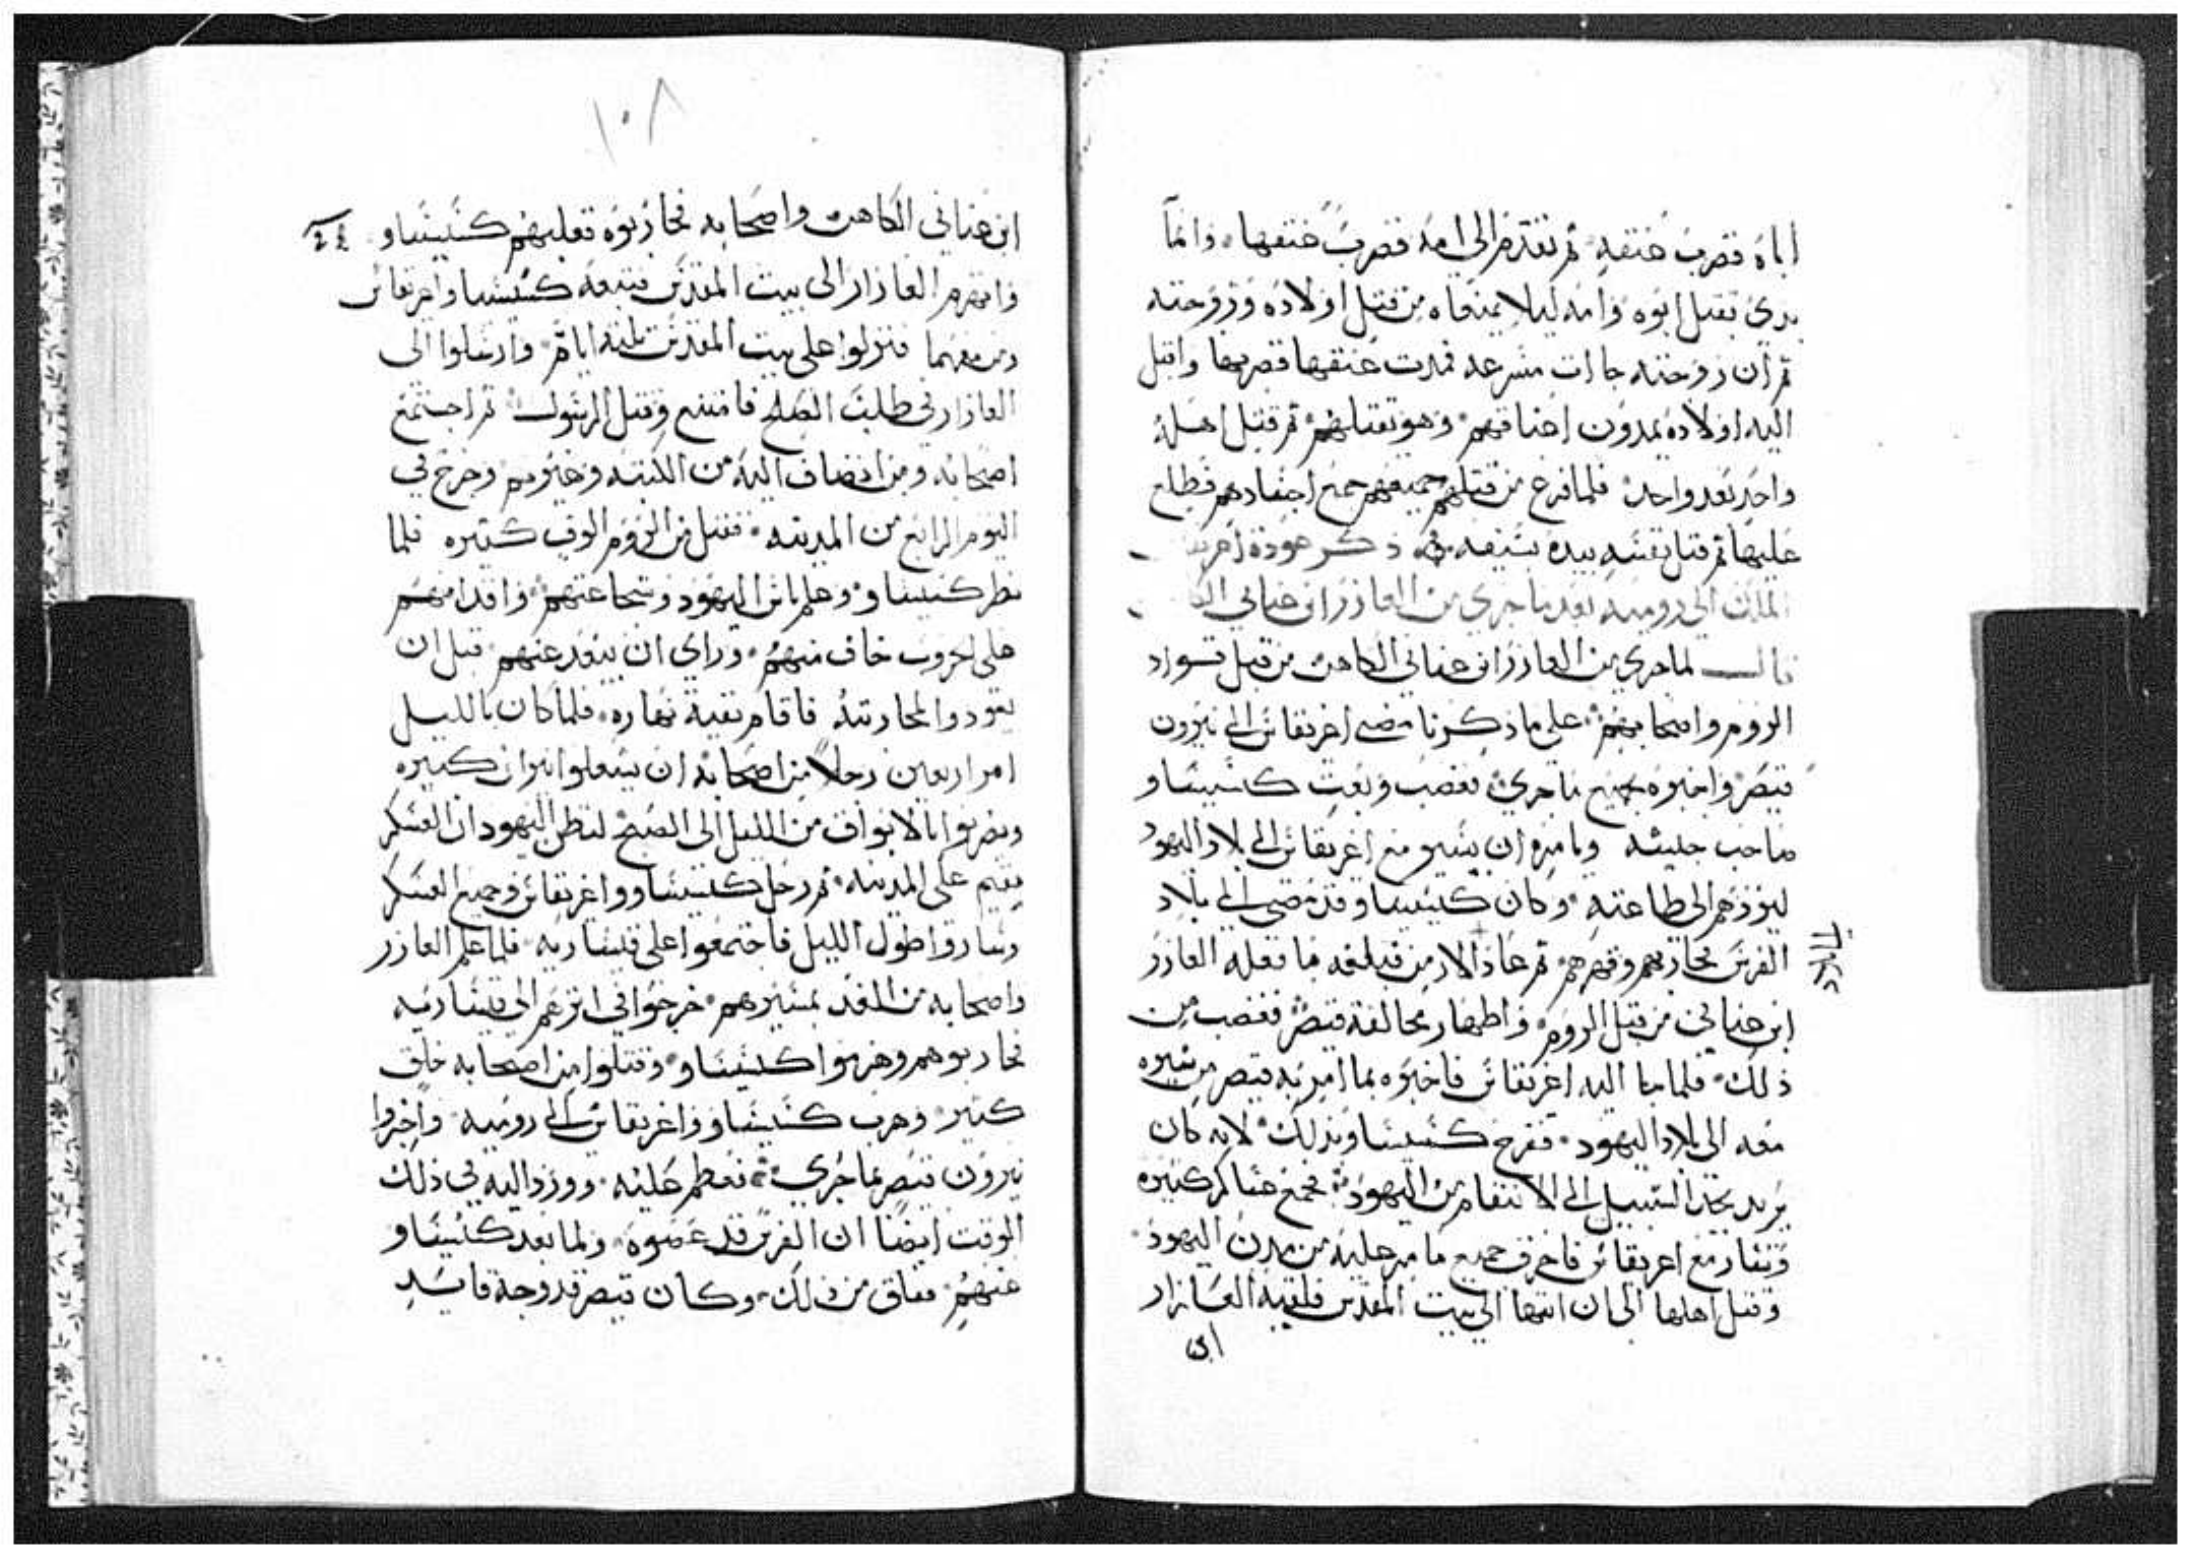 اباه فضرب عنقه ثم تقدم الى امه فضرب عنقها وانما
بدي بقتل ابوه وامه ليلا يمنعاه من قتل اولاده وزوجته
ثم ان زوجته جاات مسرعه فمدت عنقها فضربها واقبل
اليه اولاده يمدون اعناقهم وهو يقتلهم ثم قتل اهله
واحد بعد واحد فلما فرغ من قتلهم جميعهم جمع اجسادهم فطلع
عليها ثم قتل نفسه بيده بسيفه ذكر عودة
الملك الى روميه بعد ما جرى من العازر ابن عناني
قال لما جرى من العازر ابن عناني الكاهن من قتل قواد
الروم واصحابهم على ما ذكرنا مضى اغريقاس الى نيرون
قيصر واخبره بجميع ما جرى فغضب وبعث كستيناو
صاحب جيشه وامره ان يسير مع اغريقاس الى بلاد اليهود
ليردهم الى طاعته وكان كستيناو قد مضى الى بلاد
الفرس فحاربهم وقهرهم ثم عاد الى الارمن فبلغه ما فعله العازر
ابن عناني من قتل الروم واظهار مخالفة قيصر فغضب من
ذلك فلما جا اليه اغريقاس فاخبره بما امر به قيصر من مسيره
معه الى بلاد اليهود ففرح كستيناو بذلك لانه كان
يريد يجد السبيل الى الانتقام من اليهود فجمع عساكر كثيره
وسار مع اغريقاس فاحرق جميع ما مر عليه من مدن اليهود
وقتل اهلها الى ان انتها الى بيت المقدس فلقيه العازار
ابن
١٠٨
ابن عناني الكاهن واصحابه فحاربوه فغلبهم كستيناو
وانهزم العازار الى بيت المقدس فتبعه كستيناو واغريقاس
ومن معهما فنزلوا على بيت المقدس ثلثة ايام وارسلوا الى
العازار في طلب الصلح فامتنع وقتل الرسول ثم اجتمع
اصحابه ومن انضاف اليه من الكهنه وغيرهم وخرج في
اليوم الرابع من المدينه فقتل من الروم الوف كثيره فلما
نظر كستيناو وعلم باس اليهود وشجاعتهم واقدامهم
على الحروب خاف منهم وراى ان يبعد عنهم قبل ان
يعودوا لمحاربته فاقام بقية نهاره فلما كان بالليل
امر اربعين رجلا من اصحابه ان يشعلوا نيران كثيره
ويضربوا بالابواق من الليل الى الصبح ليظن اليهود ان العسكر
مقيم على المدينه ثم رحل كستيناو واغريقاس وجميع العسكر
وساروا طول الليل فاجتمعوا على قيساريه فلما علم العازر
واصحابه من الغد بمسيرهم خرجوا في اثرهم الى قيساريه
فحاربوهم وهزموا كستيناو وقتلوا من اصحابه خلق
كثير وهرب كستيناو واغريقاس الى روميه واخبروا
نيرون قيصر بما جرى فعظم عليه وورد اليه في ذلك
الوقت ايضا ان الفرس قد عصوه ولما بعد كستيناو
عنهم فقلق من ذلك وكان قيصر قد وجه قايد